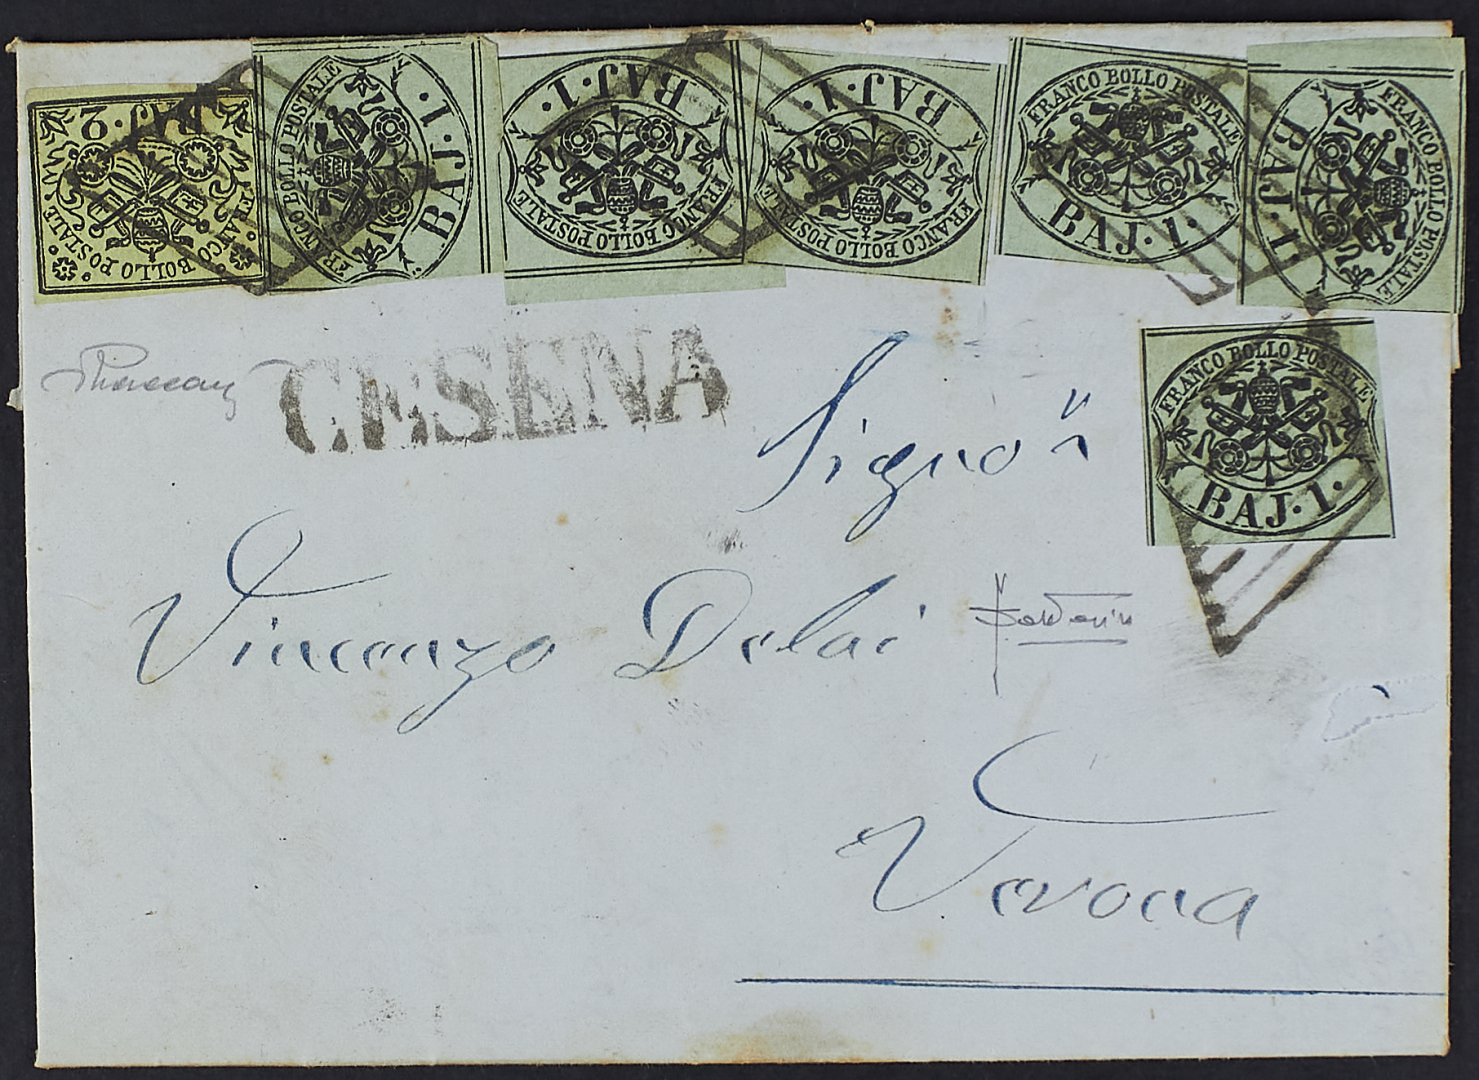 BAJ. 2
FRANCO BOLLO POSTALE
FRANCO BOLLO POSTALE
BAJ. 1.
BAJ. 1.
FRANCO BOLLO POSTALE
BAJ. 1.
FRANCO BOLLO POSTALE
FRANCO BOLLO POSTALE
BAJ. 1.
FRANCO BOLLO POSTALE
BAJ. 1.
FRANCO BOLLO POSTALE
BAJ. 1.
CESENA
Signor
Vincenzo Delai
Verona